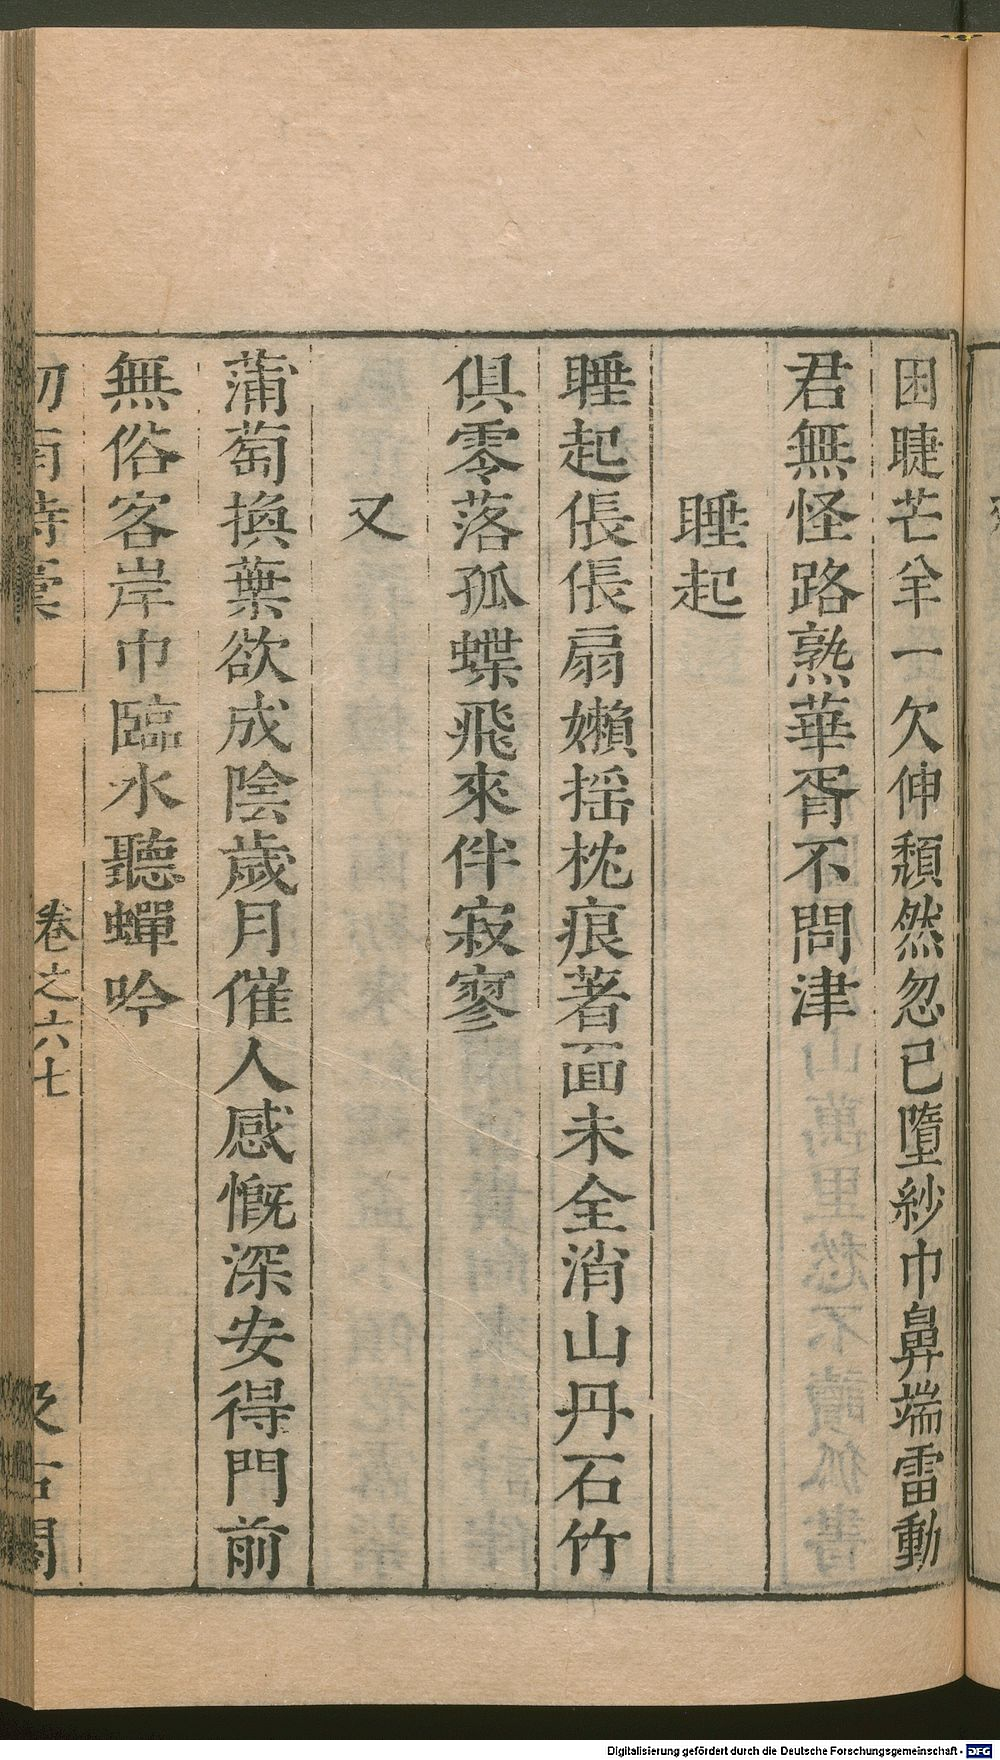 困睫芒羊一欠伸頽然忽已墮紗巾鼻端雷動
君無怪路熟華胥不問津
睡起
睡起倀倀扇嬾揺枕痕著面未全消山丹石竹
俱零落孤蝶飛來伴寂寥
又
蒲萄換葉欲成陰歲月催人感慨深安得門前
無俗客岸巾臨水聽蟬吟
劒南詩稾
卷之六七
汲古閣
Digitalisierung gefördert durch die Deutsche Forschungsgemeinschaft - DFG